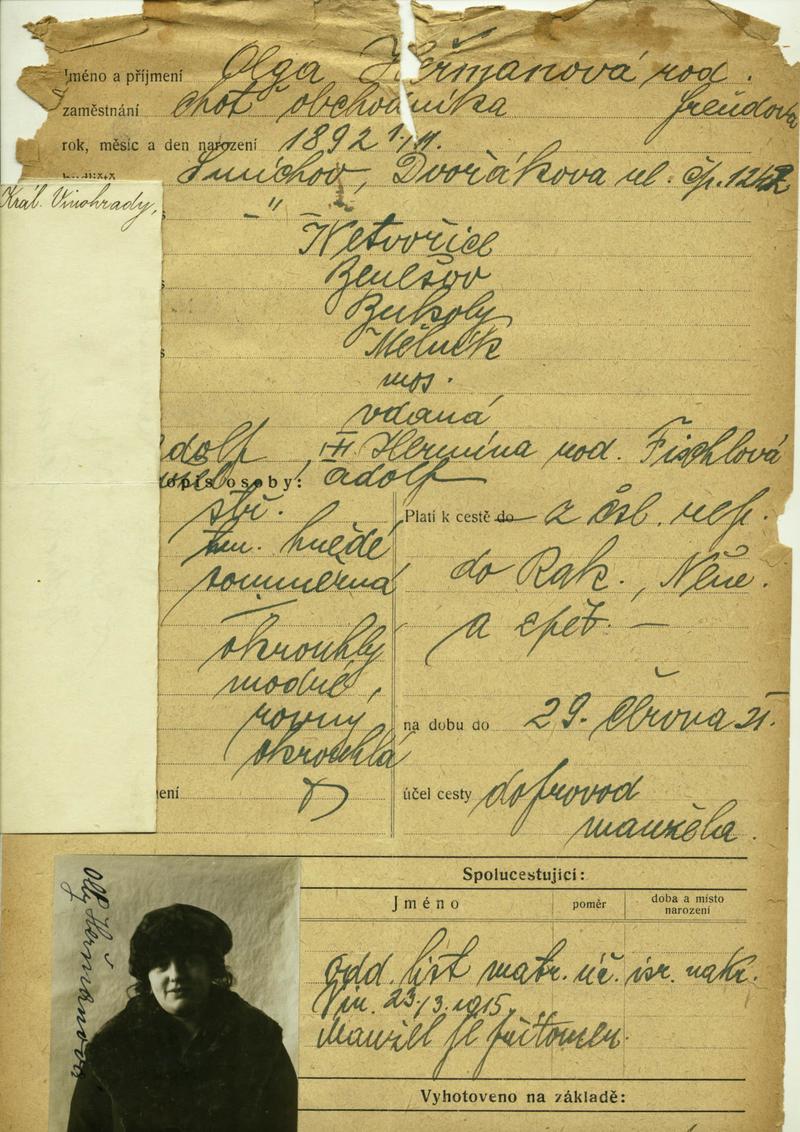 Jméno a příjmení Olga Heřmanová rod.
zaměstnání choť obchodníka Freudova
rok, měsíc a den narození 1892 1./11.
Smíchov, Dvořákova ul. čp. 1242
Král. Vinohrady,
- " -
Netvořice
Benešov
Bukoly
Mělník
mos.
vdaná
dolf Hermína rod. Fischlová
opis osoby: Adolf
stř.
Platí k cestě do z čsl. rep.
tm. hnědé
souměrná
do Rak., Něm.
a zpět. —
okrouhlý
modré,
rovný
na dobu do 29. června 21.
okrouhlá
ení
účel cesty doprovod
manžela.
Spolucestující:
Jméno poměr doba a místo
narození
Olly Heřmanová
odd. list matr. úř. isr. nakr.
Vin. 23./3. 1915.
Manžel je přítomen.
Vyhotoveno na základě: